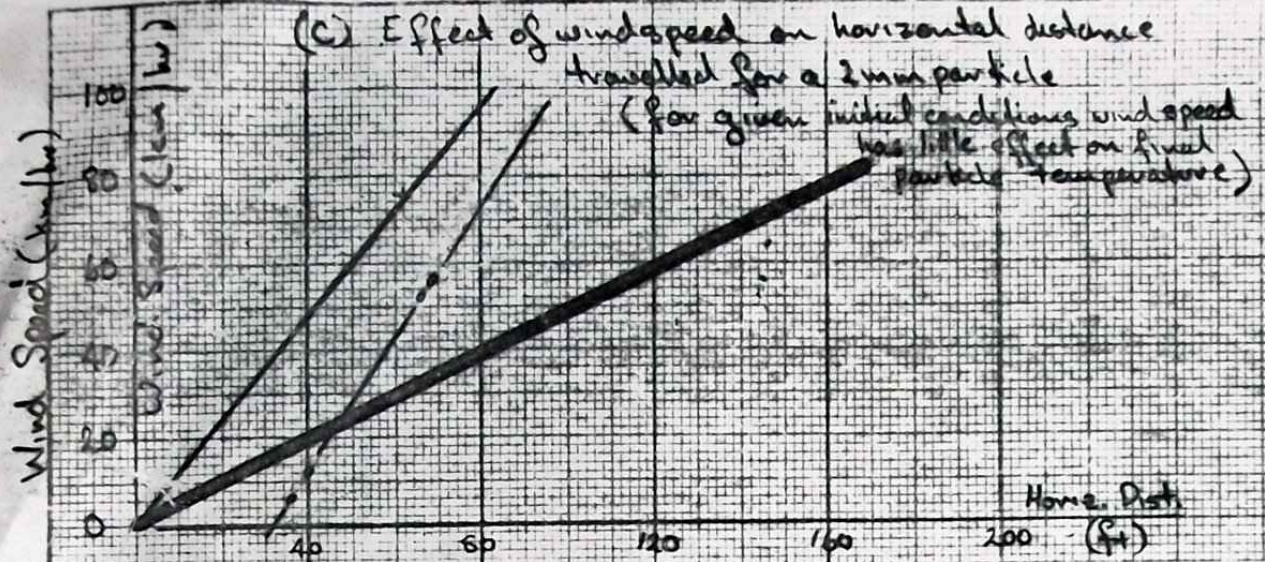 (C) Effect of windspeed on horizontal distance
travelled for a 2mm particle
(for given initial conditions wind speed
has little effect on final
particle temperature)
Wind Speed (km/hr)
Wind Speed (km/hr)
100
80
60
40
20
0
40
80
120
160
200
Horiz. Dist.
(ft)